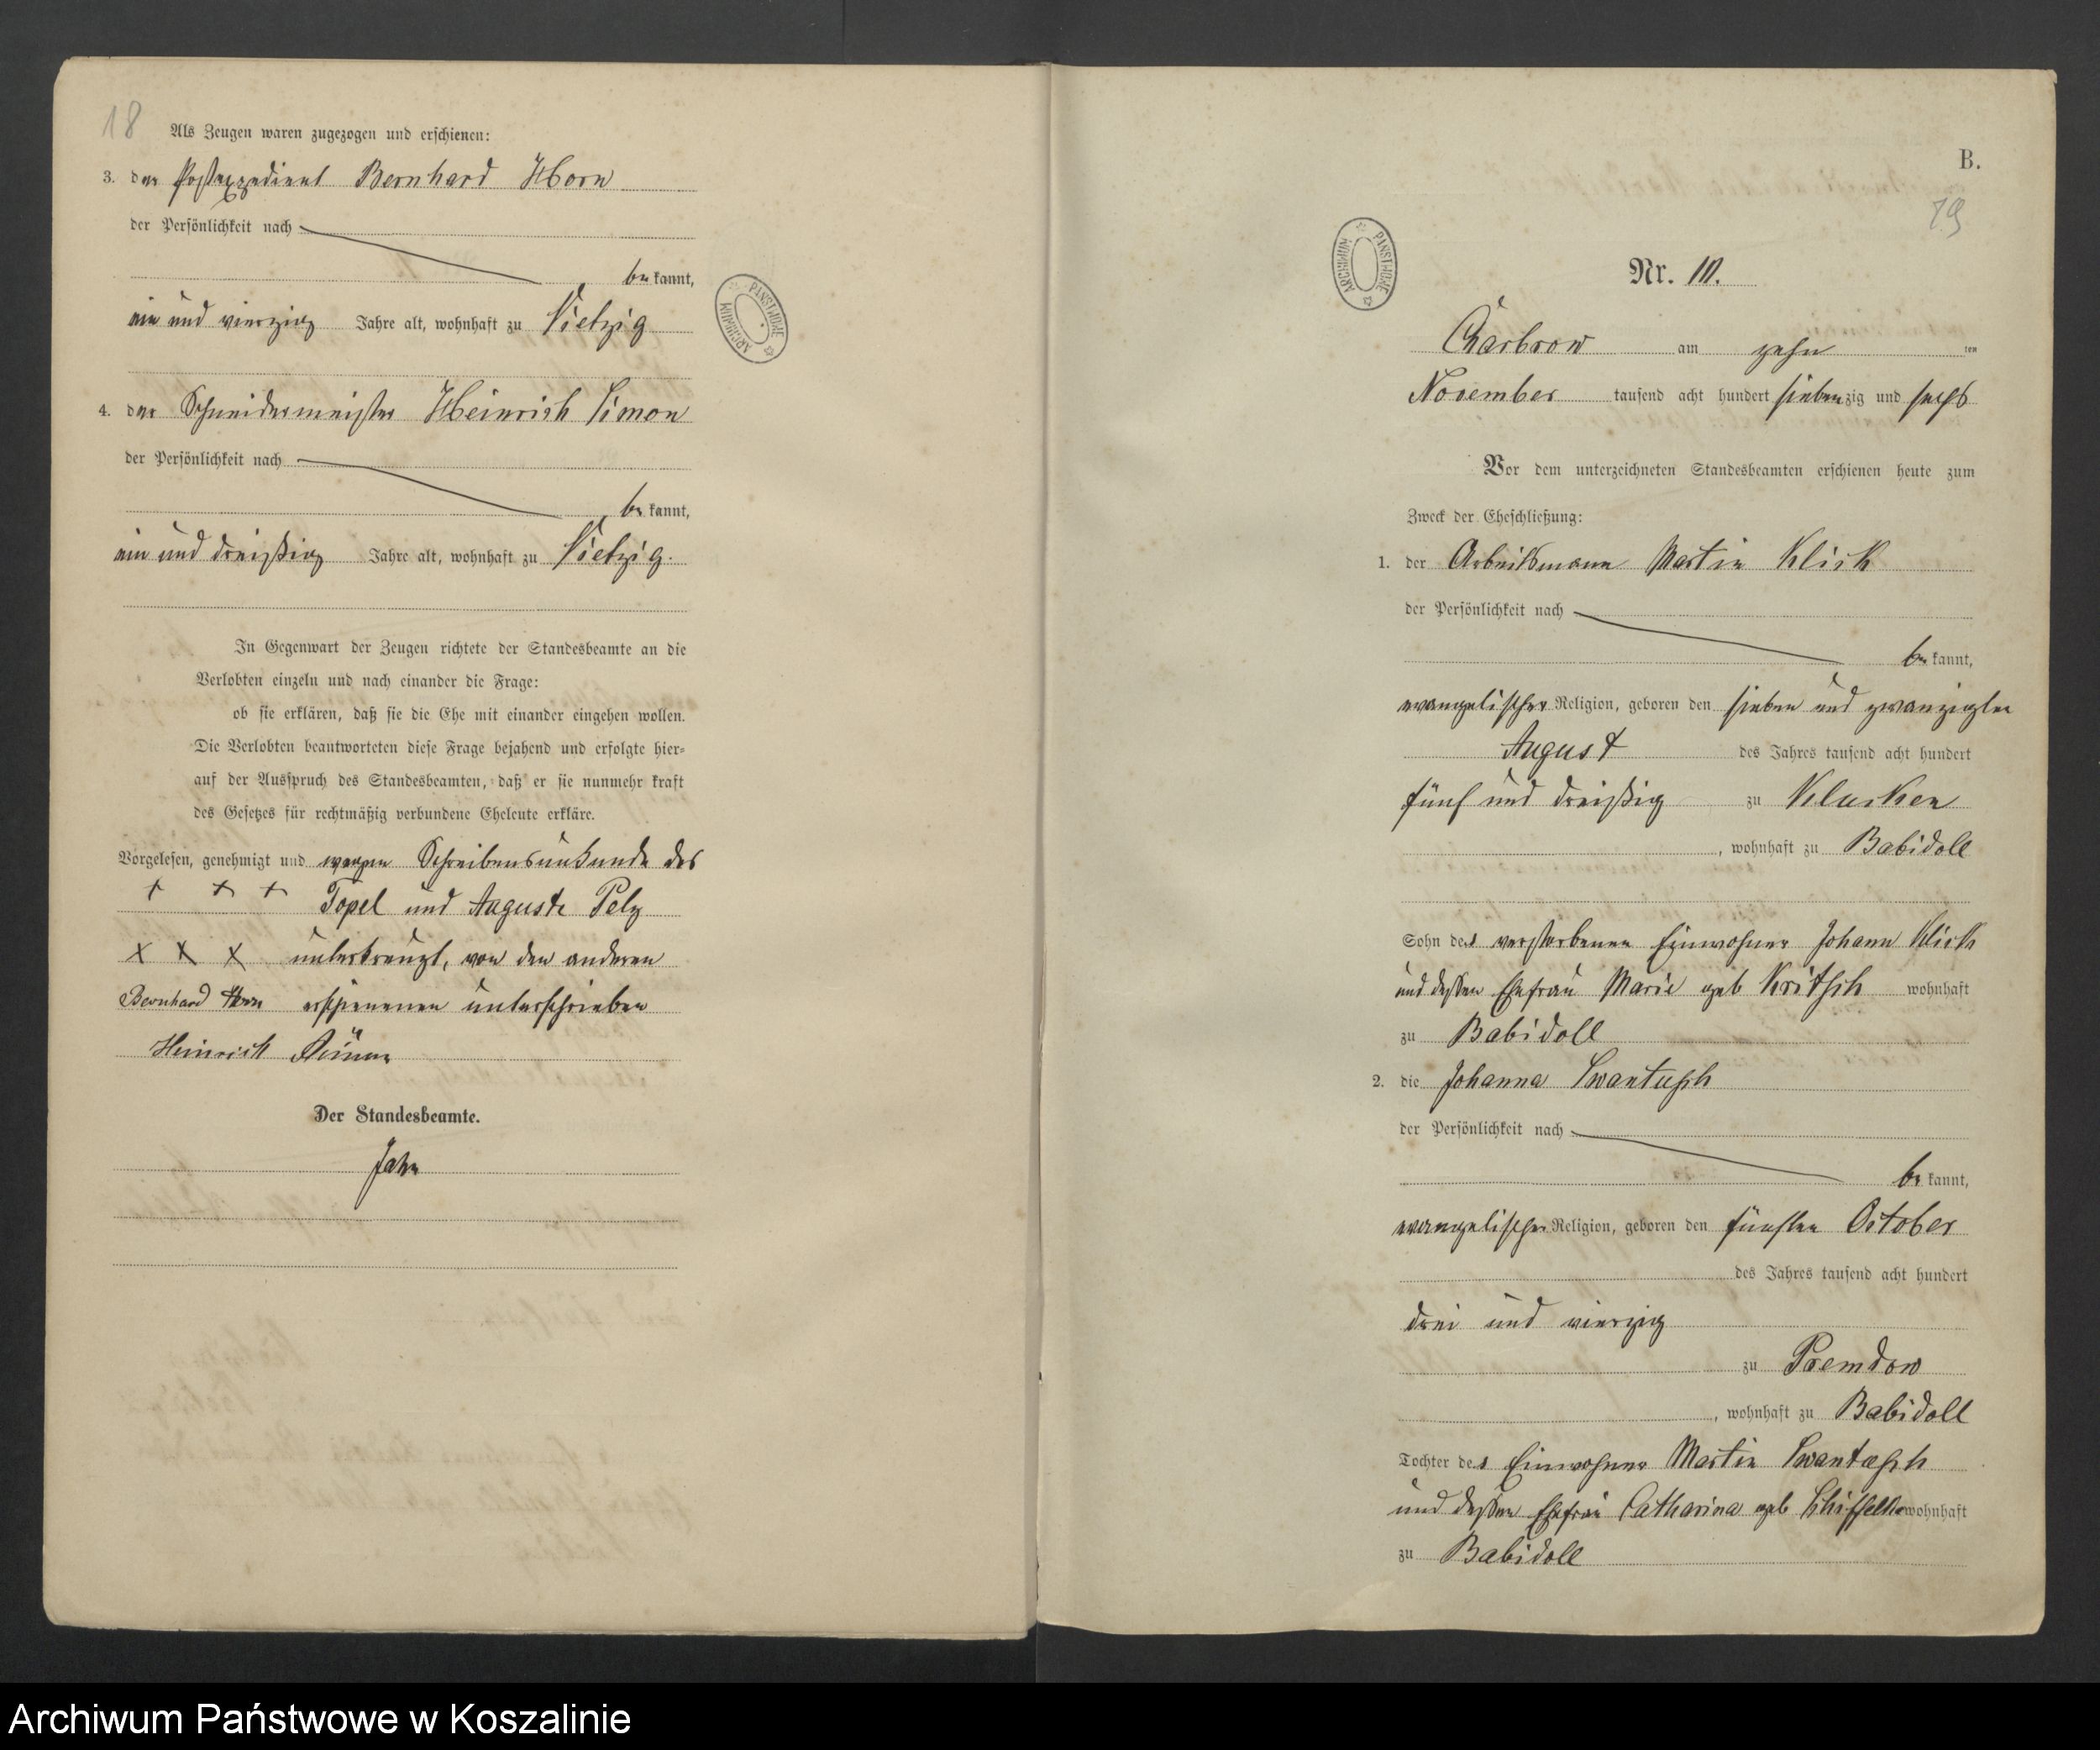 18
Als Zeugen waren zugezogen und erschienen:
3. der Postexpedient Bernhard Horn
der Persönlichkeit nach
be kannt,
ein und vierzig Jahre alt, wohnhaft zu Vietzig
4. der Schneidermeister Heinrich Simon
der Persönlichkeit nach
be kannt,
ein und dreißig Jahre alt, wohnhaft zu Vietzig.
In Gegenwart der Zeugen richtete der Standesbeamte an die
Verlobten einzeln und nach einander die Frage:
ob sie erklären, daß sie die Ehe mit einander eingehen wollen.
Die Verlobten beantworteten diese Frage bejahend und erfolgte hier-
auf der Ausspruch des Standesbeamten, daß er sie nunmehr kraft
des Gesetzes für rechtmäßig verbundene Eheleute erkläre.
Vorgelesen, genehmigt und wegen Schreibensunkunde des
+ + + Topel und Auguste Pelz
x x x unterkreuzt, von den anderen
Bernhard Horn erschienenen unterschrieben
Heinrich
Der Standesbeamte.
Jahn
B.
19
Nr. 10.
Charbrow am zehn ten
November tausend acht hundert siebenzig und sechs
Vor dem unterzeichneten Standesbeamten erschienen heute zum
Zweck der Eheschließung:
1. der Arbeitsmann Martin Klick
der Persönlichkeit nach
be kannt,
evangelischer Religion, geboren den sieben und zwanzigsten
August des Jahres tausend acht hundert
fünf und dreißig zu Klucken
, wohnhaft zu Babidoll
Sohn des verstorbenen Einwohner Johann Klick
und dessen Ehefrau Marie geb Kritsch wohnhaft
zu Babidoll
2. die Johanna Swantusch
der Persönlichkeit nach
be kannt,
evangelischer Religion, geboren den fünften October
des Jahres tausend acht hundert
drei und vierzig
zu Premdow
, wohnhaft zu Babidoll
Tochter des Einwohner Martin Swantusch
und dessen Ehefrau Catharina geb wohnhaft
zu Babidoll
ARCHIWUM PAŃSTWOWE
ARCHIWUM PAŃSTWOWE
Archiwum Państwowe w Koszalinie